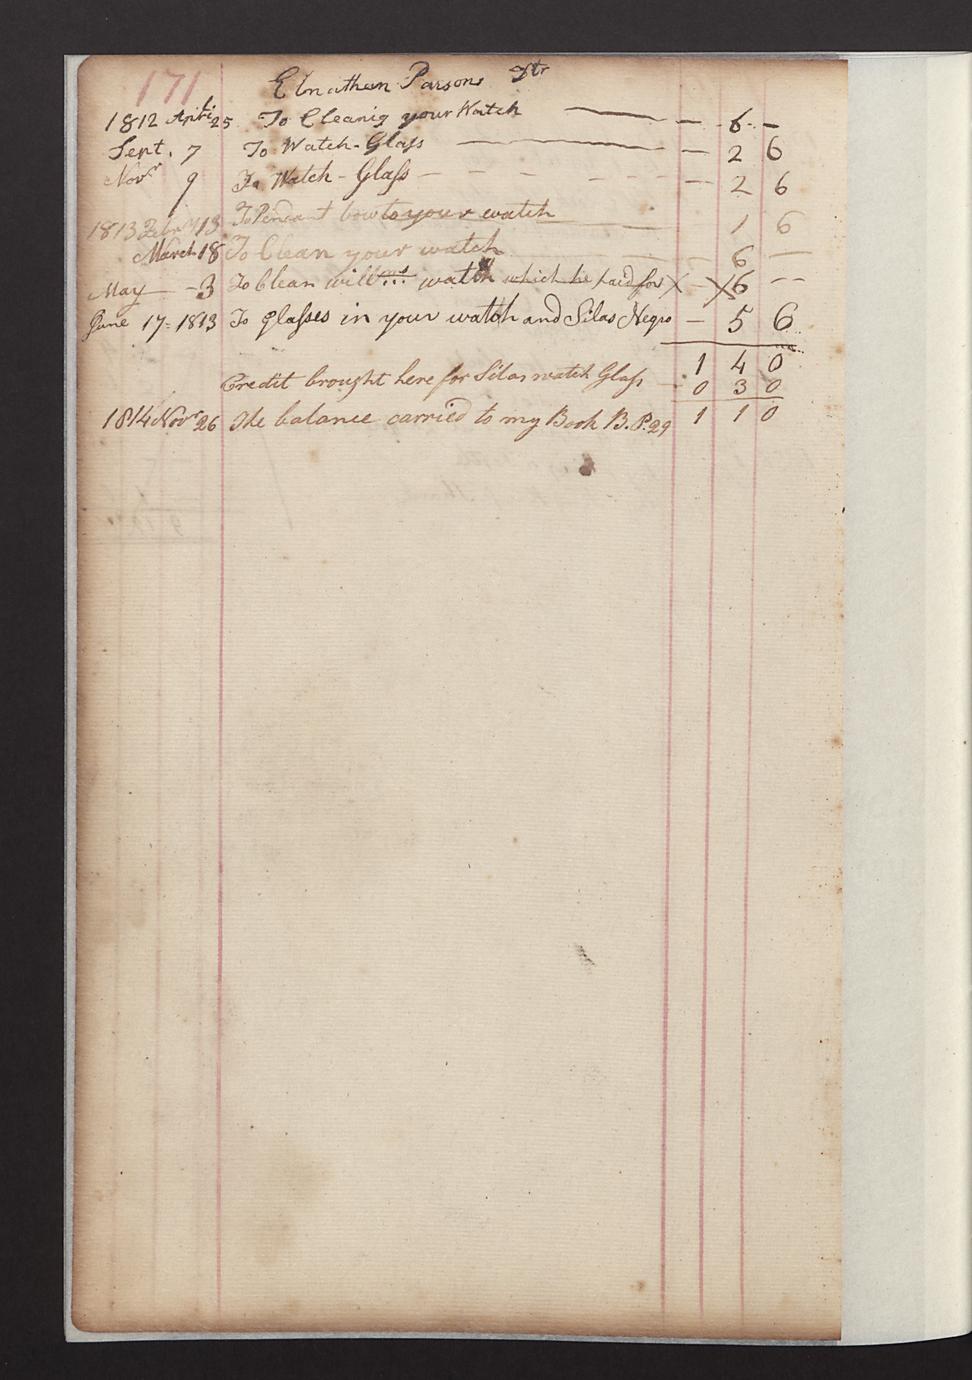 171 Elnathan Parsons Dtr
1812 April 25 To Cleanig your Watch — — 6 —
Sept. 7 To Watch-Glass — — 2 6
Novr 9 To Watch-Glass — — 2 6
1813 Febry 13 To Pendant bow to your watch — 1 6
March 18 To Clean your watch — 6 —
May — 3 To Clean willms watch which he paid for X — X6 --
June 17-1813 To glasses in your watch and Silas Negro — 5 6
1 4 0
Credit brought here for Silas watch Glass — 0 3 0
1814 Novr 26 The balance carried to my Book B. P. 29 1 1 0